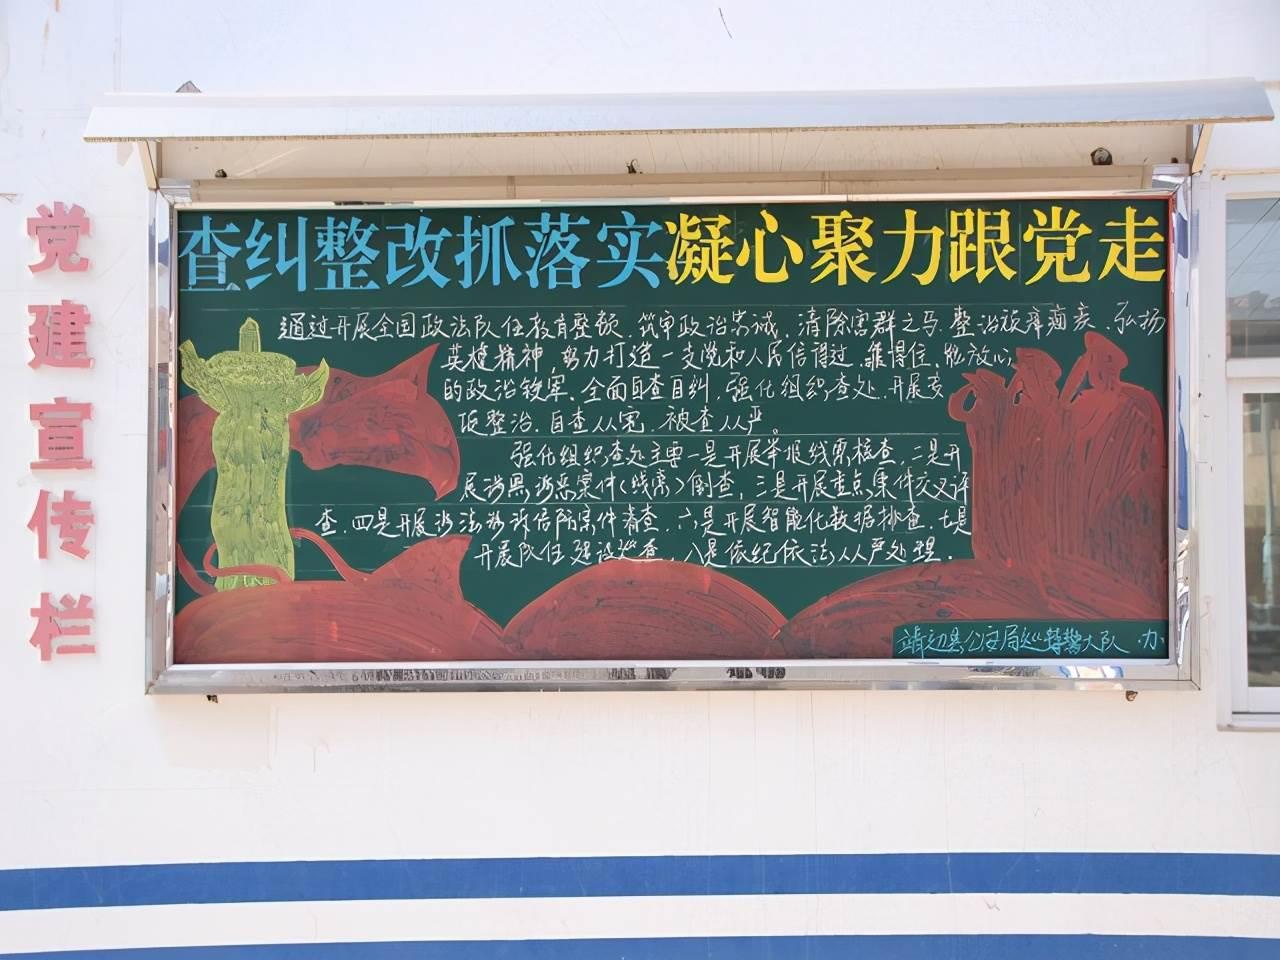 党建宣传栏
查纠整改抓落实 凝心聚力跟党走
通过开展全国政法队伍教育整顿、筑牢政治忠诚、清除害群之马、整治顽瘴痼疾、弘扬
英模精神,努力打造一支党和人民信得过、靠得住、能放心
的政治铁军、全面自查自纠、强化组织查处、开展
整治、自查从宽、被查从严。
强化组织查处主要一是开展举报线索核查、二是开
展涉黑涉恶案件(线索)倒查,三是开展重点案件交叉评
查、四是开展涉法涉诉信访案件清查、六是开展智能化数据排查、七是
开展队伍建设巡查、八是依纪依法从严处理。
靖边县公安局巡特警大队 办